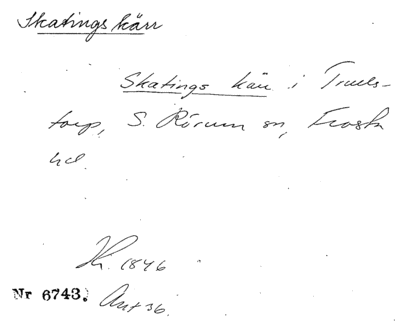 Skatings kärr
Skatings kärr i Truls-
torp, S. Rörum sn, Frosta
hd.
Kr. 1846
Nr 6743. Ant 36.